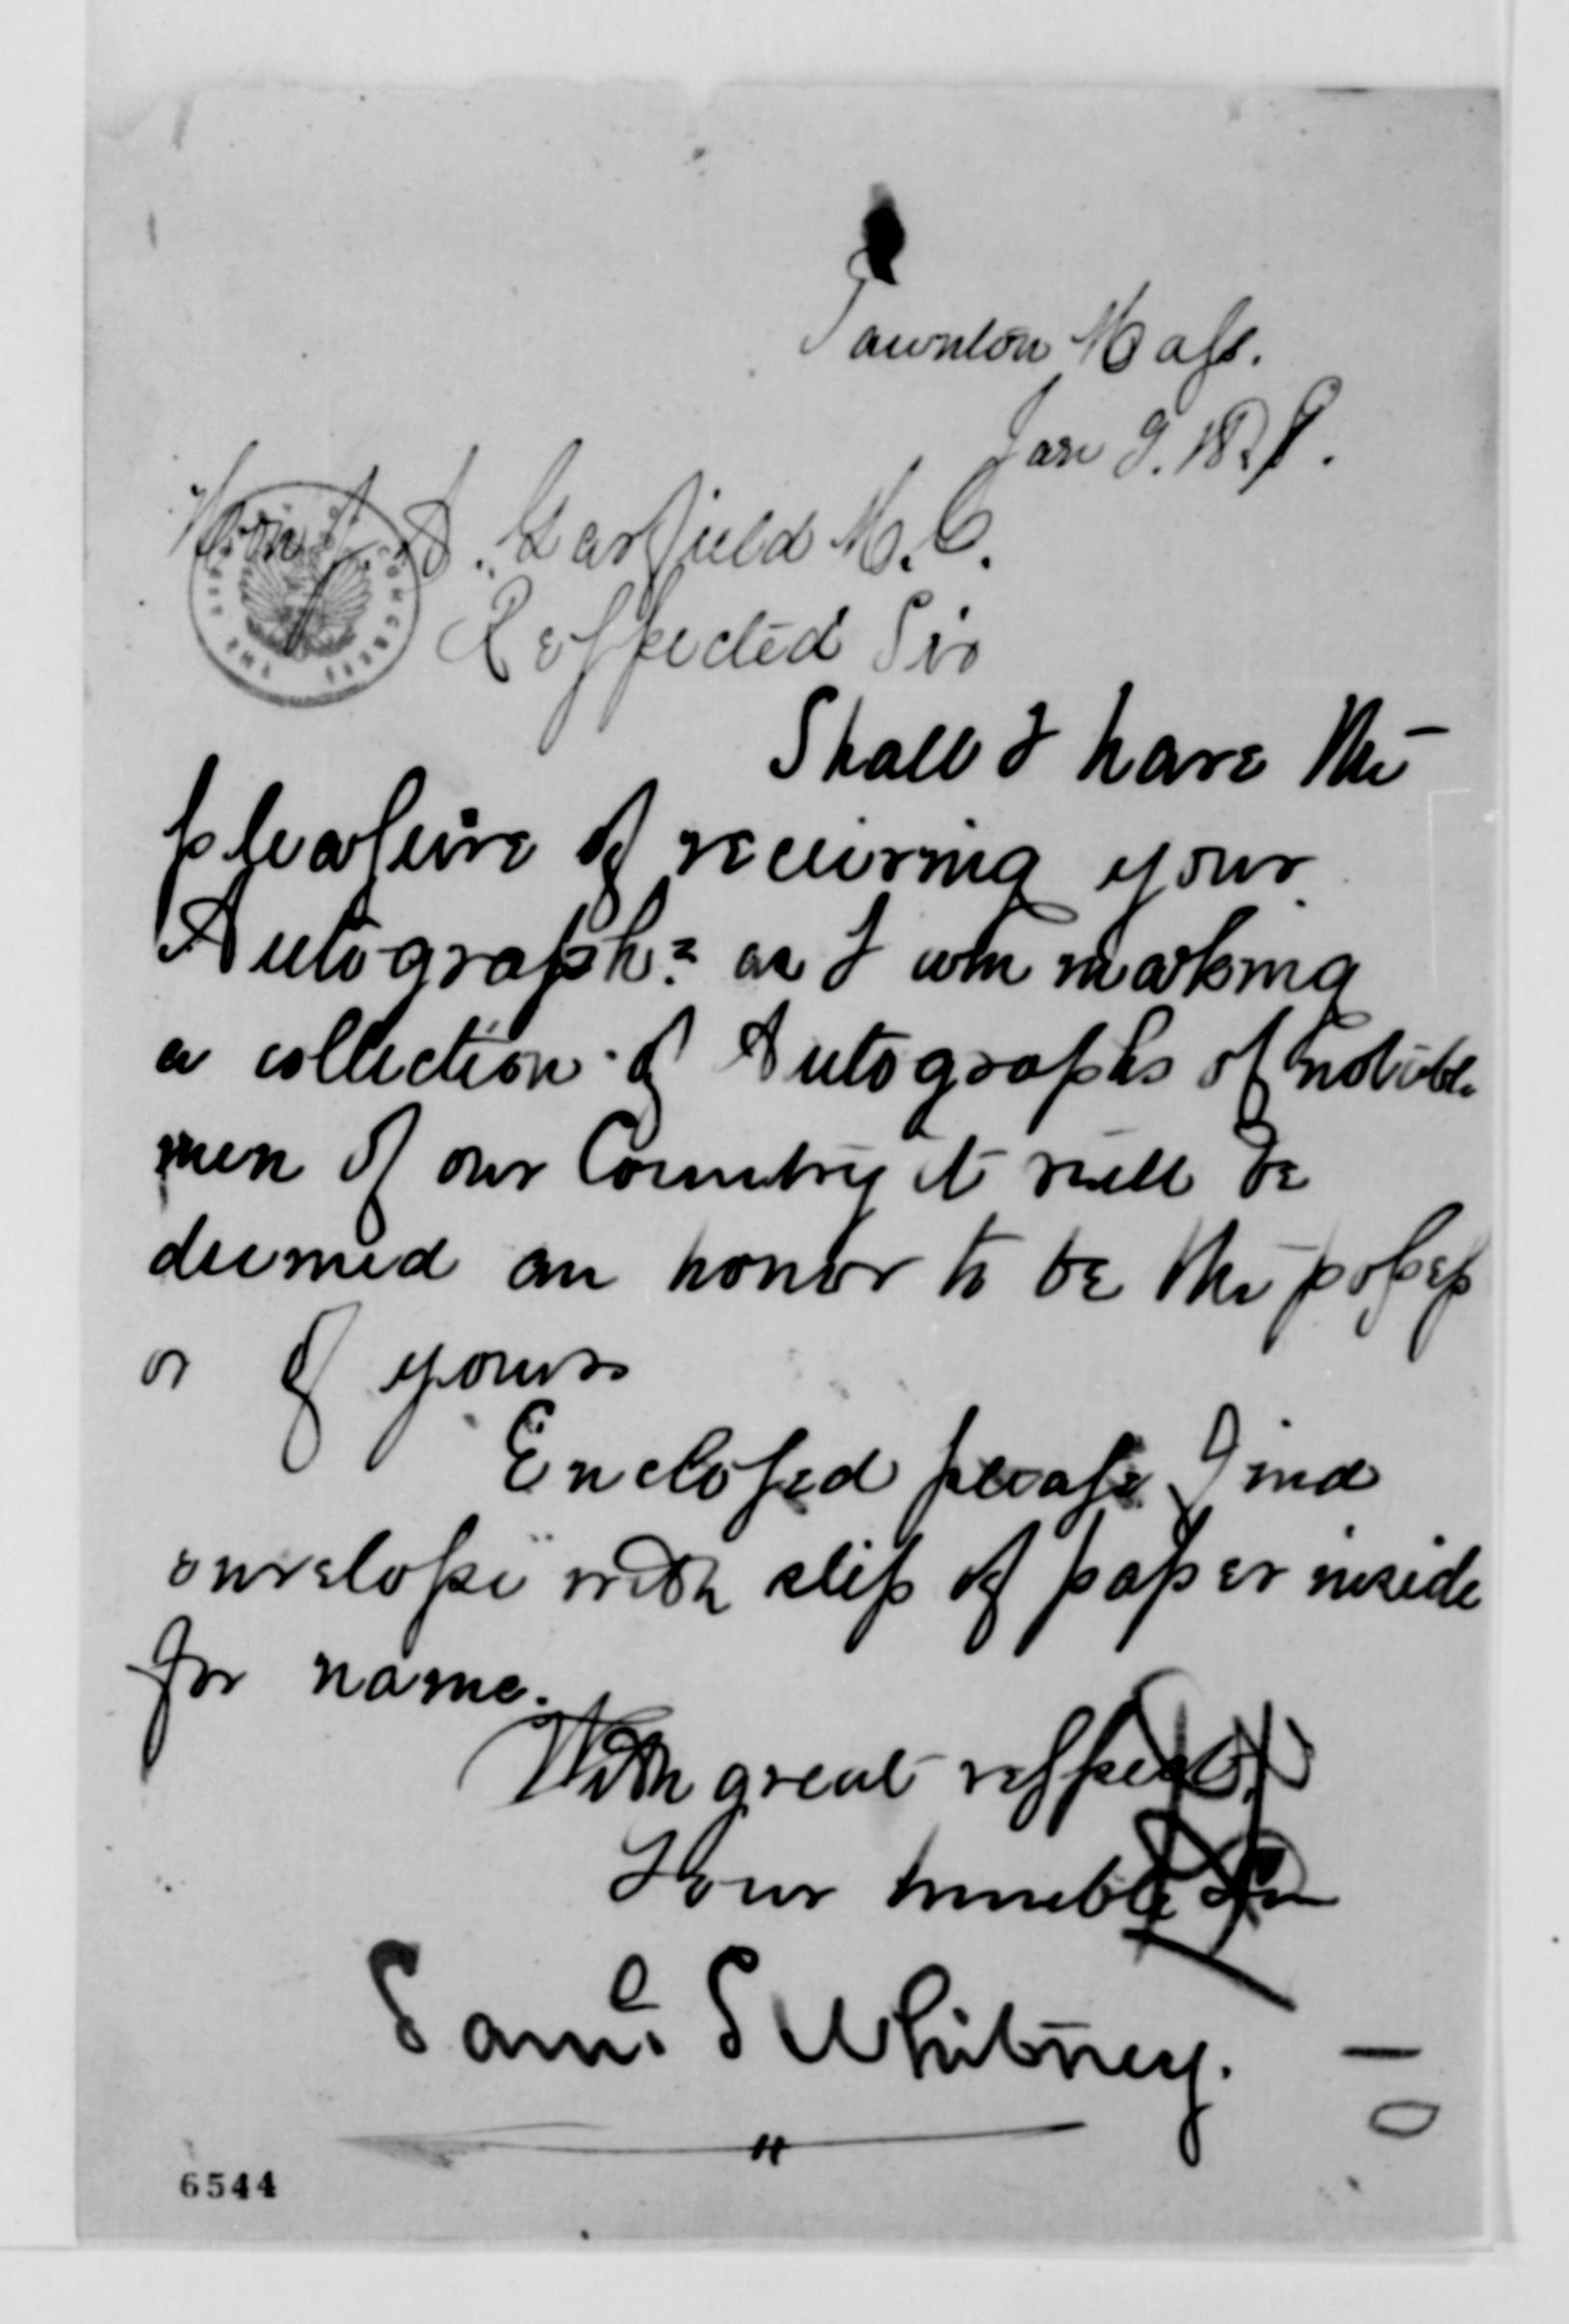 Taunton Mass.
Jan 9. 187
Hon J. A. Garfield M.C.
Respected Sir
Shall I have the
pleasure of receiving your
Autograph? as I am making
a collection of Autographs of notable
men of our Country it will be
deemed an honor to be the possess
or of yours
Enclosed please find
envelope with slip of paper inside
for name.
With great respect,
Your humble
Saml. S Whitney.
6544